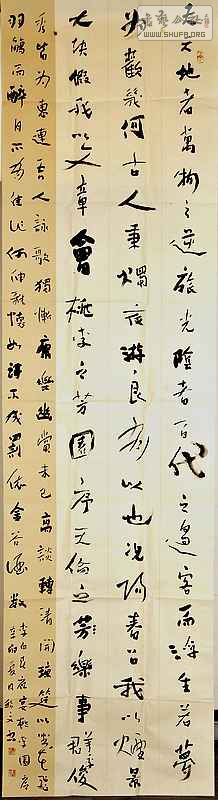 夫天地者萬物之逆旅光陰者百代之過客而浮生若夢
為歡幾何古人秉燭夜游良有以也況陽春召我以煙景
大塊假我以文章會桃李之芳園序天倫之芳樂事羣季俊
秀皆為惠連吾人詠歌獨慚康樂幽賞未已高談轉清開瓊筵以坐花飛
羽觴而醉月不有佳詠何伸雅懷如詩不成罰依金谷酒數
李白春夜宴桃李園序
辛卯夏日
WWW.SHUFA.ORG